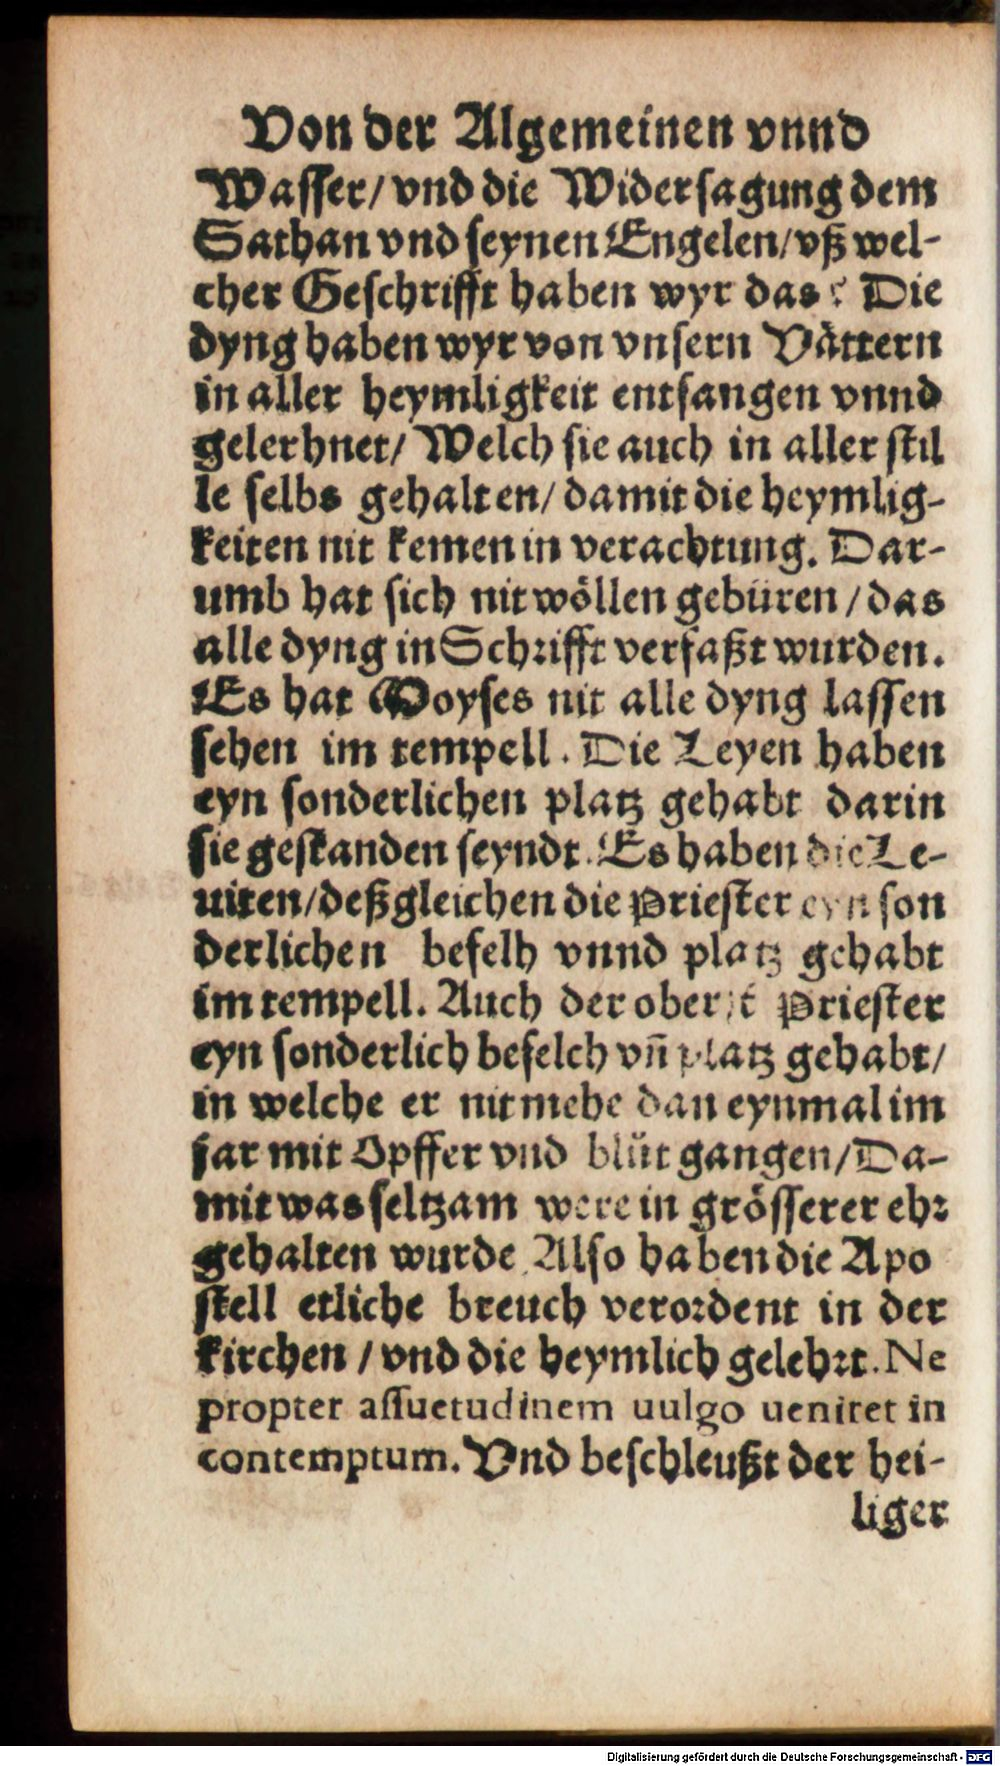 Von der Algemeinen vnnd
Wasser/ vnd die Widersagung dem
Sathan vnd seynen Engelen/ vß wel-
cher Geschrifft haben wyr das? Die
dyng haben wyr von vnsern Vättern
in aller heymligkeit entfangen vnnd
gelerhnet/ Welch sie auch in aller stil
le selbs gehalten/ damit die heymlig-
keiten nit kemen in verachtung. Dar-
umb hat sich nit wöllen gebüren / das
alle dyng in Schrifft verfaßt wurden.
Es hat Moyses nit alle dyng lassen
sehen im tempell. Die Leyen haben
eyn sonderlichen platz gehabt darin
sie gestanden seyndt. Es haben die Le-
uiten/ deßgleichen die Priester eyn son
derlichen befelh vnnd platz gehabt
im tempell. Auch der oberst Priester
eyn sonderlich befelch vñ platz gehabt/
in welche er nit mehe dan eynmal im
jar mit Opffer vnd blůt gangen/ Da-
mit was seltzam were in grösserer ehr
gehalten wurde. Also haben die Apo
stell etliche breuch verordent in der
kirchen / vnd die heymlich gelehrt. Ne
propter assuetudinem uulgo ueniret in
contemptum. Vnd beschleußt der hei-
liger
Digitalisierung gefördert durch die Deutsche Forschungsgemeinschaft - DFG